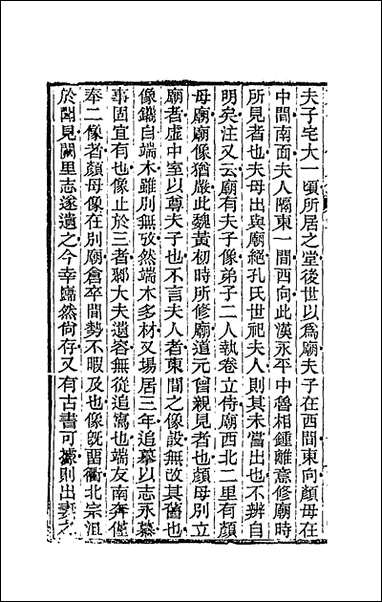 夫子宅大一頃所居之堂後世以爲廟夫子在西間東向顏母在
中間南面夫人隔東一間西向此漢永平中魯相鍾離意修廟時
所見者也夫母出與廟絕孔氏世祀夫人則其未嘗出也不辨自
明矣注又云廟有夫子像弟子二人執卷立侍廟西北二里有顏
母廟廟像猶嚴此魏黃初時所修廟道元曾親見者也顏母別立
廟者虛中室以尊夫子也不言夫人者東間之像設無改其舊也
像鐫自端木雖別無攷然端木多材又場居三年追摹以志永慕
事固宜有也像止於三者鄹大夫遺容無從追寫也端友南奔僅
奉二像者顏母像在別廟倉卒間勢不暇及也像旣留衢北宗沮
於聞見闕里志遂遺之今幸巋然尙存又有古書可據則出妻之